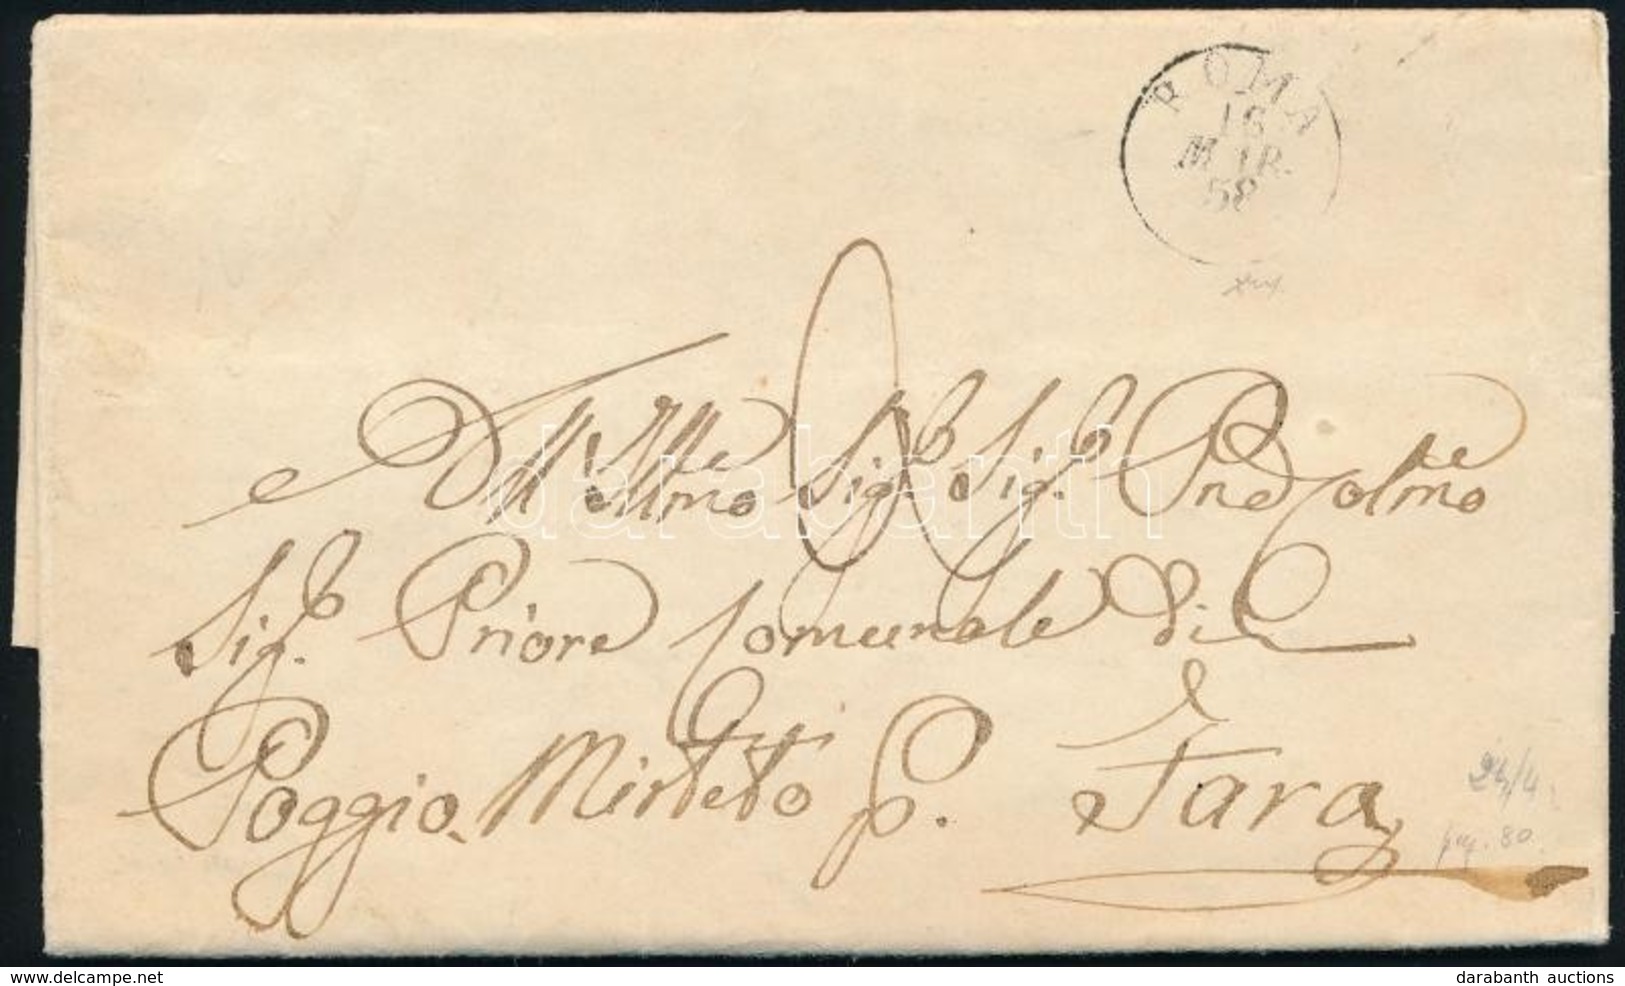 ROMA
16
MAR.
58
All' Illmo Sigr. Sigr. Pne Colmo
Sigr. Priore Comunale di
Poggio Mirteto p. Fara
24/4
80
darabanth
delcampe.net
darabanth auctions